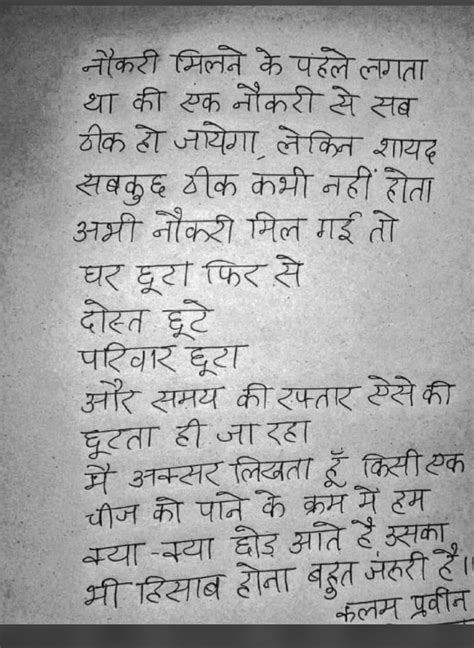 नौकरी मिलने के पहले लगता
था की एक नौकरी से सब
ठीक हो जायेगा, लेकिन शायद
सबकुछ ठीक कभी नहीं होता
अभी नौकरी मिल गई तो
घर छूटा फिर से
दोस्त छूटे
परिवार छूटा
और समय की रफ्तार ऐसे की
छूटता ही जा रहा
मैं अक्सर लिखता हूँ किसी एक
चीज को पाने के क्रम में हम
क्या-क्या छोड़ आते है उसका
भी हिसाब होना बहुत जरुरी है।।
कलम प्रवीन